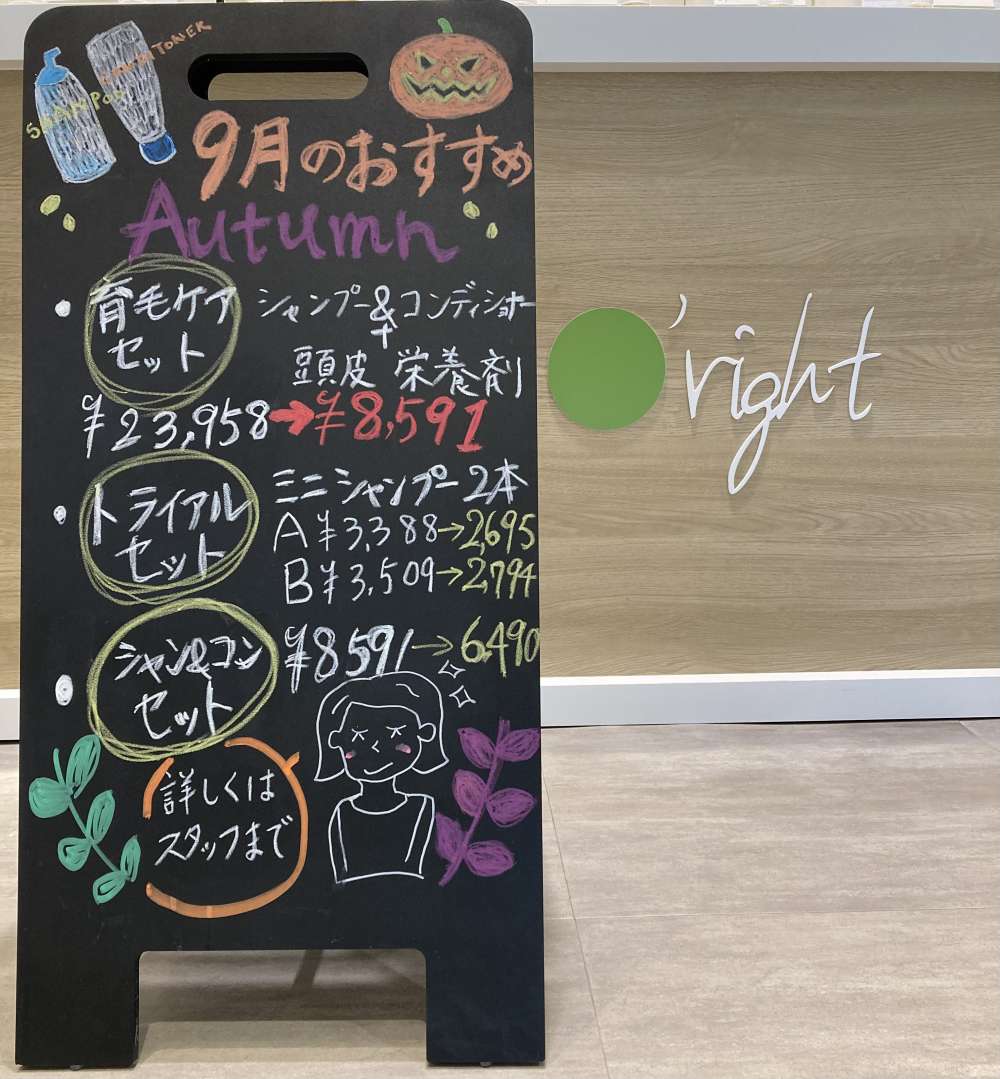 SHAMPOO
TONER
9月のおすすめ
Autumn
・育毛ケアセット シャンプー&コンディショナー
+
頭皮 栄養剤
¥23,958→¥8,591
・トライアルセット ミニシャンプー2本
A ¥3,388→2,695
B ¥3,509→2,794
・シャン&コンセット ¥8591→6,490
詳しくは
スタッフまで
O'right